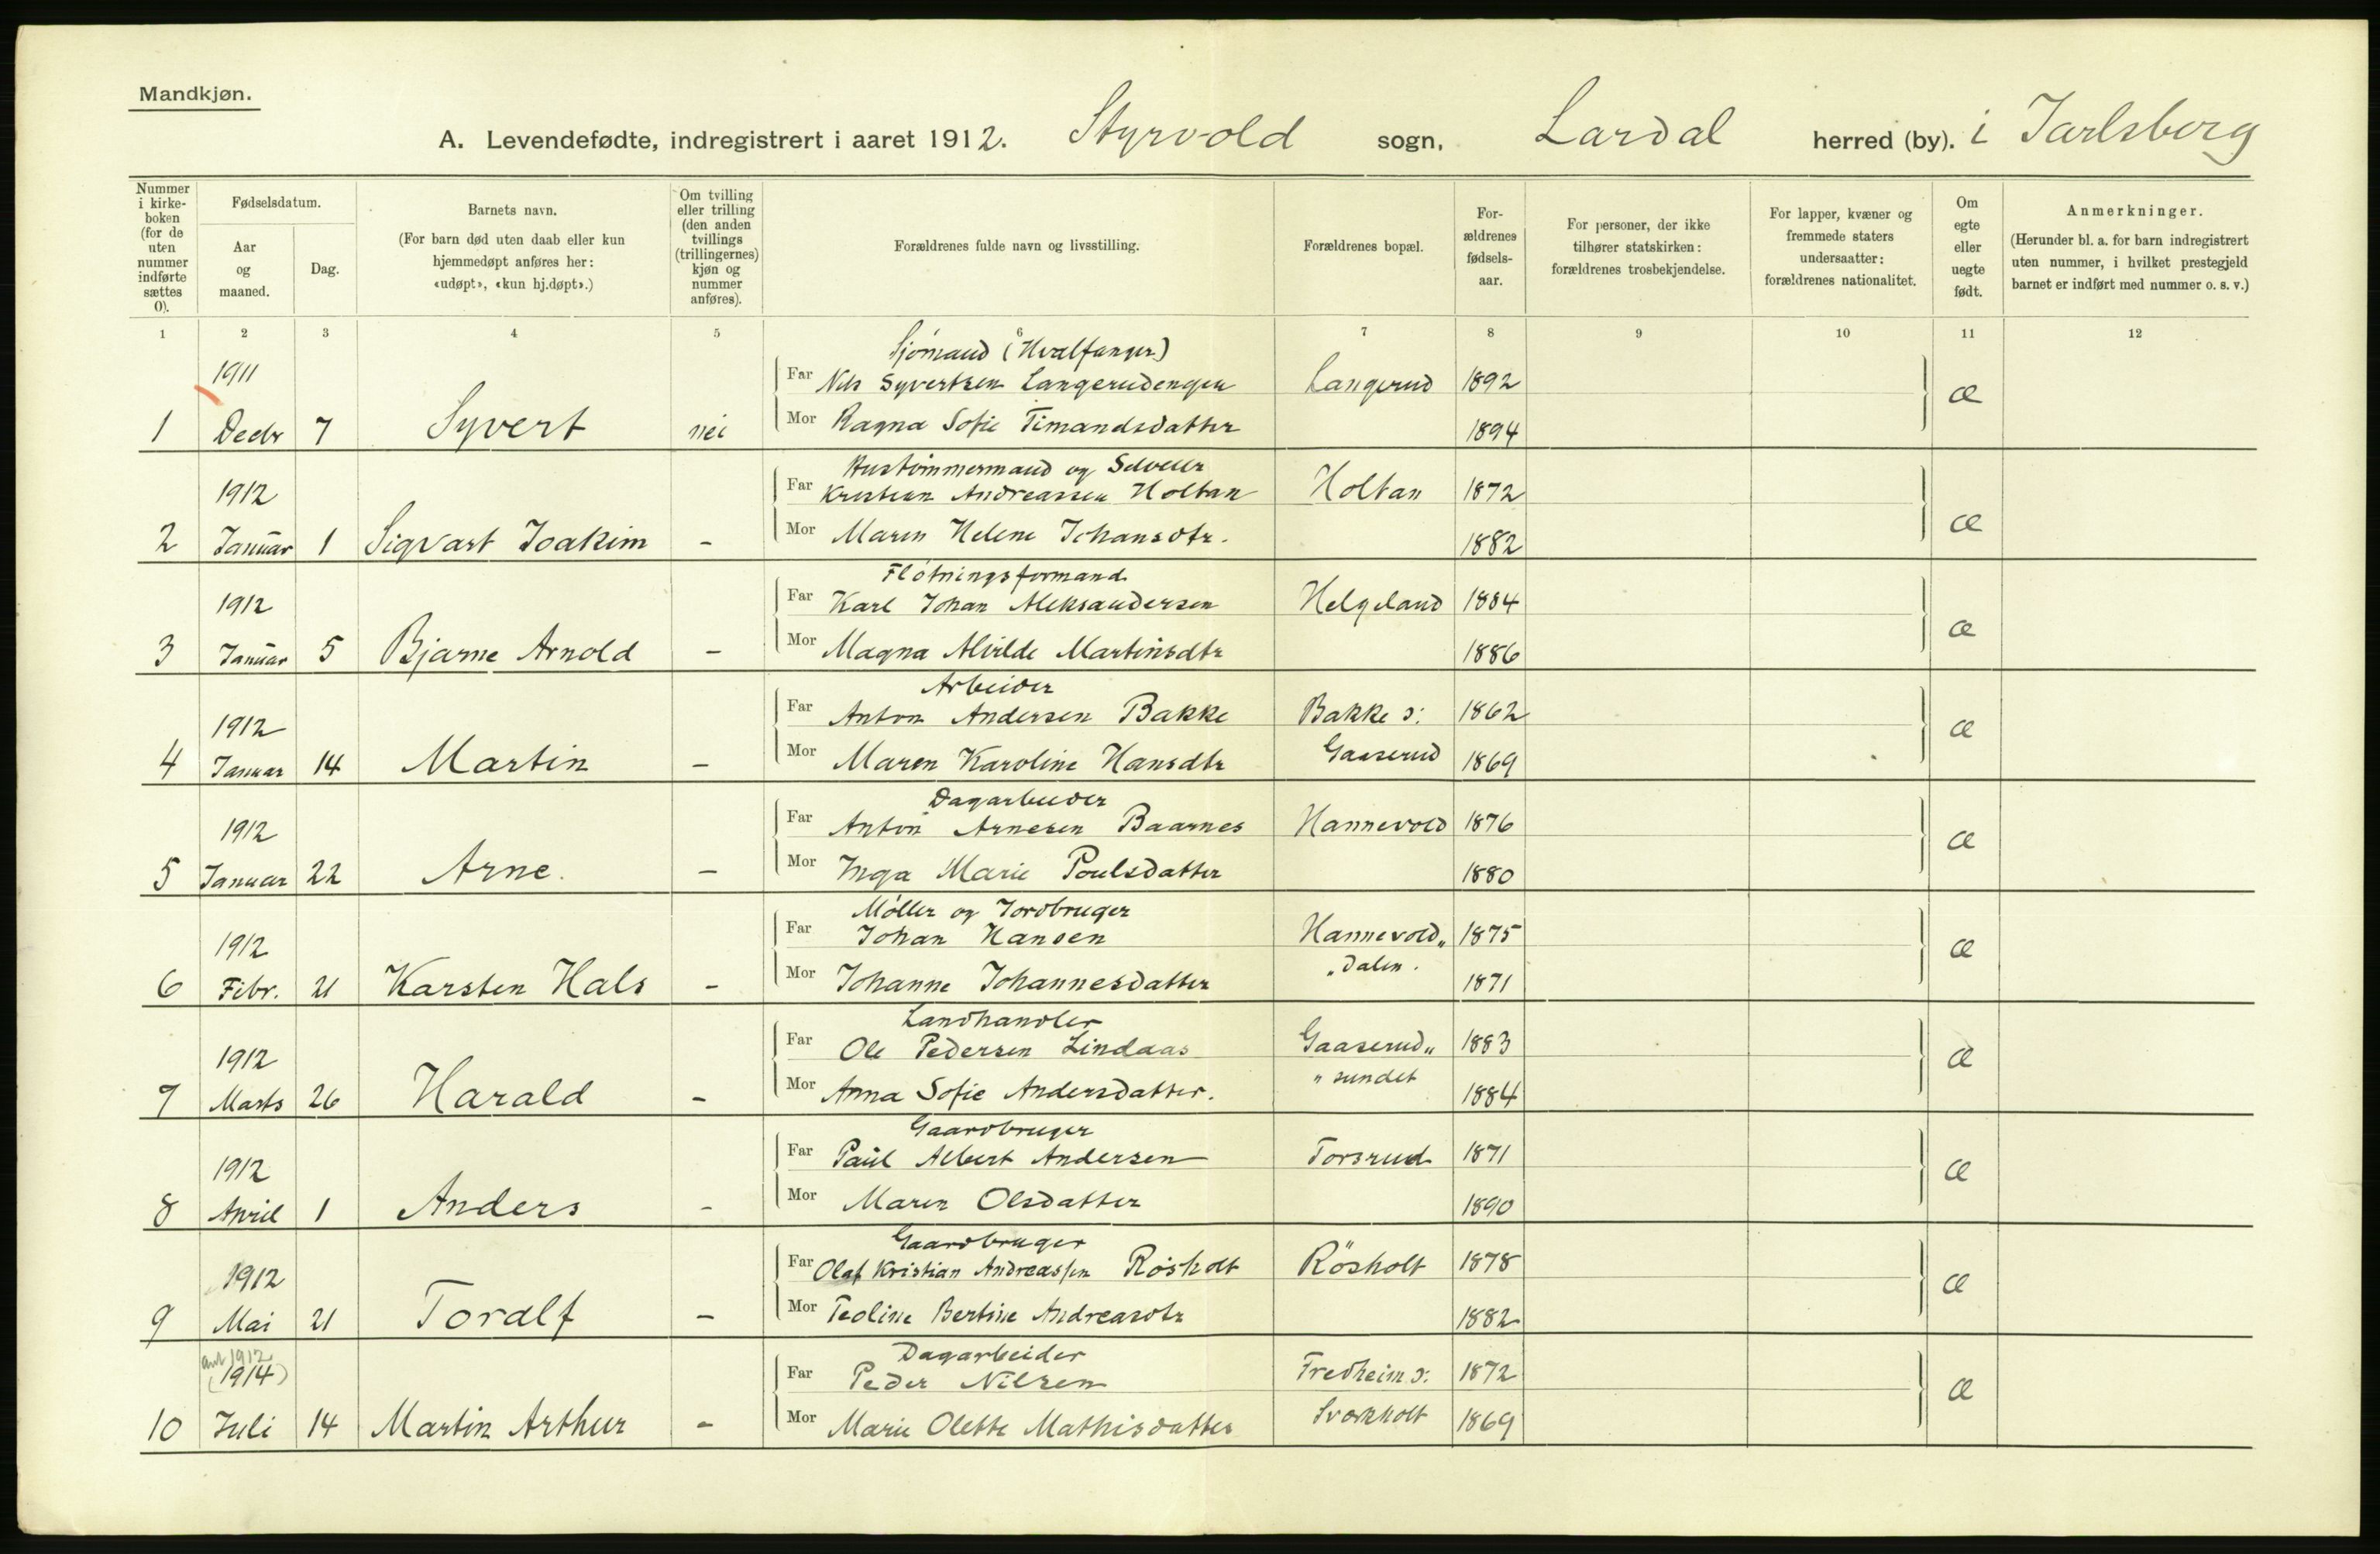 Mandkjøn.
A. Levendefødte, indregistrert i aaret 1912. Styrvold sogn, Lardal herred (by). i Jarlsberg
Nummer i kirke-boken (for de uten nummer indførte sættes 0).
Fødselsdatum.
Aar og maaned.
Dag.
Barnets navn.
(For barn død uten daab eller kun hjemmedøpt anføres her: «udøpt», «kun hj.døpt».)
Om tvilling eller trilling (den anden tvillings (trillingernes) kjøn og nummer anføres).
Forældrenes fulde navn og livsstilling.
Forældrenes bopæl.
For-ældrenes fødsels-aar.
For personer, der ikke tilhører statskirken: forældrenes trosbekjendelse.
For lapper, kvæner og fremmede staters undersaatter: forældrenes nationalitet.
Om egte eller uegte født.
Anmerkninger.
(Herunder bl. a. for barn indregistrert uten nummer, i hvilket prestegjeld barnet er indført med nummer o. s. v.)
1 2 3 4 5 6 7 8 9 10 11 12
Sjömand (Hvalfanger)
1911 Far Nils Syvertsen Langerudengen Langerud 1892 æ
1 Decbr 7 Syvert nei Mor Ragna Sofie Timandsdatter 1894
Hustömmermand og Selveier
1912 Far Kristian Andreassen Holtan Holtan 1872 æ
2 Januar 1 Sigvart Joakim - Mor Maren Helene Johansdtr. 1882
Flötningsformand
1912 Far Karl Johan Aleksandersen Helgeland 1884 æ
3 Januar 5 Bjarne Arnold - Mor Magna Alvilde Martinsdtr 1886
Arbeider
1912 Far Anton Andersen Bakke Bakke s: 1862 æ
4 Januar 14 Martin - Mor Maren Karoline Hansdtr Gaaserud 1869
Dagarbeider
1912 Far Anton Arnesen Baarnes Hannevold 1876 æ
5 Januar 22 Arne. - Mor Inga Marie Poulsdatter 1880
Möller og Jordbruger
1912 Far Johan Hansen Hannevold„ 1875 æ
6 Febr. 21 Karsten Hals - Mor Johanne Johannesdatter „dalen. 1871
Landhandler
1912 Far Ole Pedersen Lindaas Gaaserud„ 1883 æ
7 Marts 26 Harald - Mor Anna Sofie Andersdatter. „sundet 1884
Gaardbruger
1912 Far Paul Albert Andersen Torsrud 1871 æ
8 April 1 Anders - Mor Maren Olsdatter 1890
Gaardbruger
1912 Far Olaf Kristian Andreassen Rösholt Rösholt 1878 æ
9 Mai 21 Toralf - Mor Teoline Bertine Andreasdtr 1882
1912 Dagarbeider
(1914) Far Peder Nilsen Fredheim s: 1872 æ
10 Juli 14 Martin Arthur - Mor Marie Olette Mathisdatter Svarkholt 1869